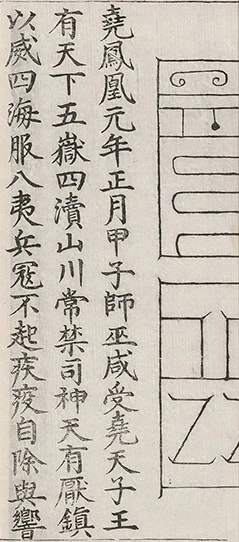 堯鳳凰元年正月甲子師巫咸受堯天子王
有天下五嶽四瀆山川常禁司神天有厭鎮
以威四海服八夷兵冦不起疾疫自除與響